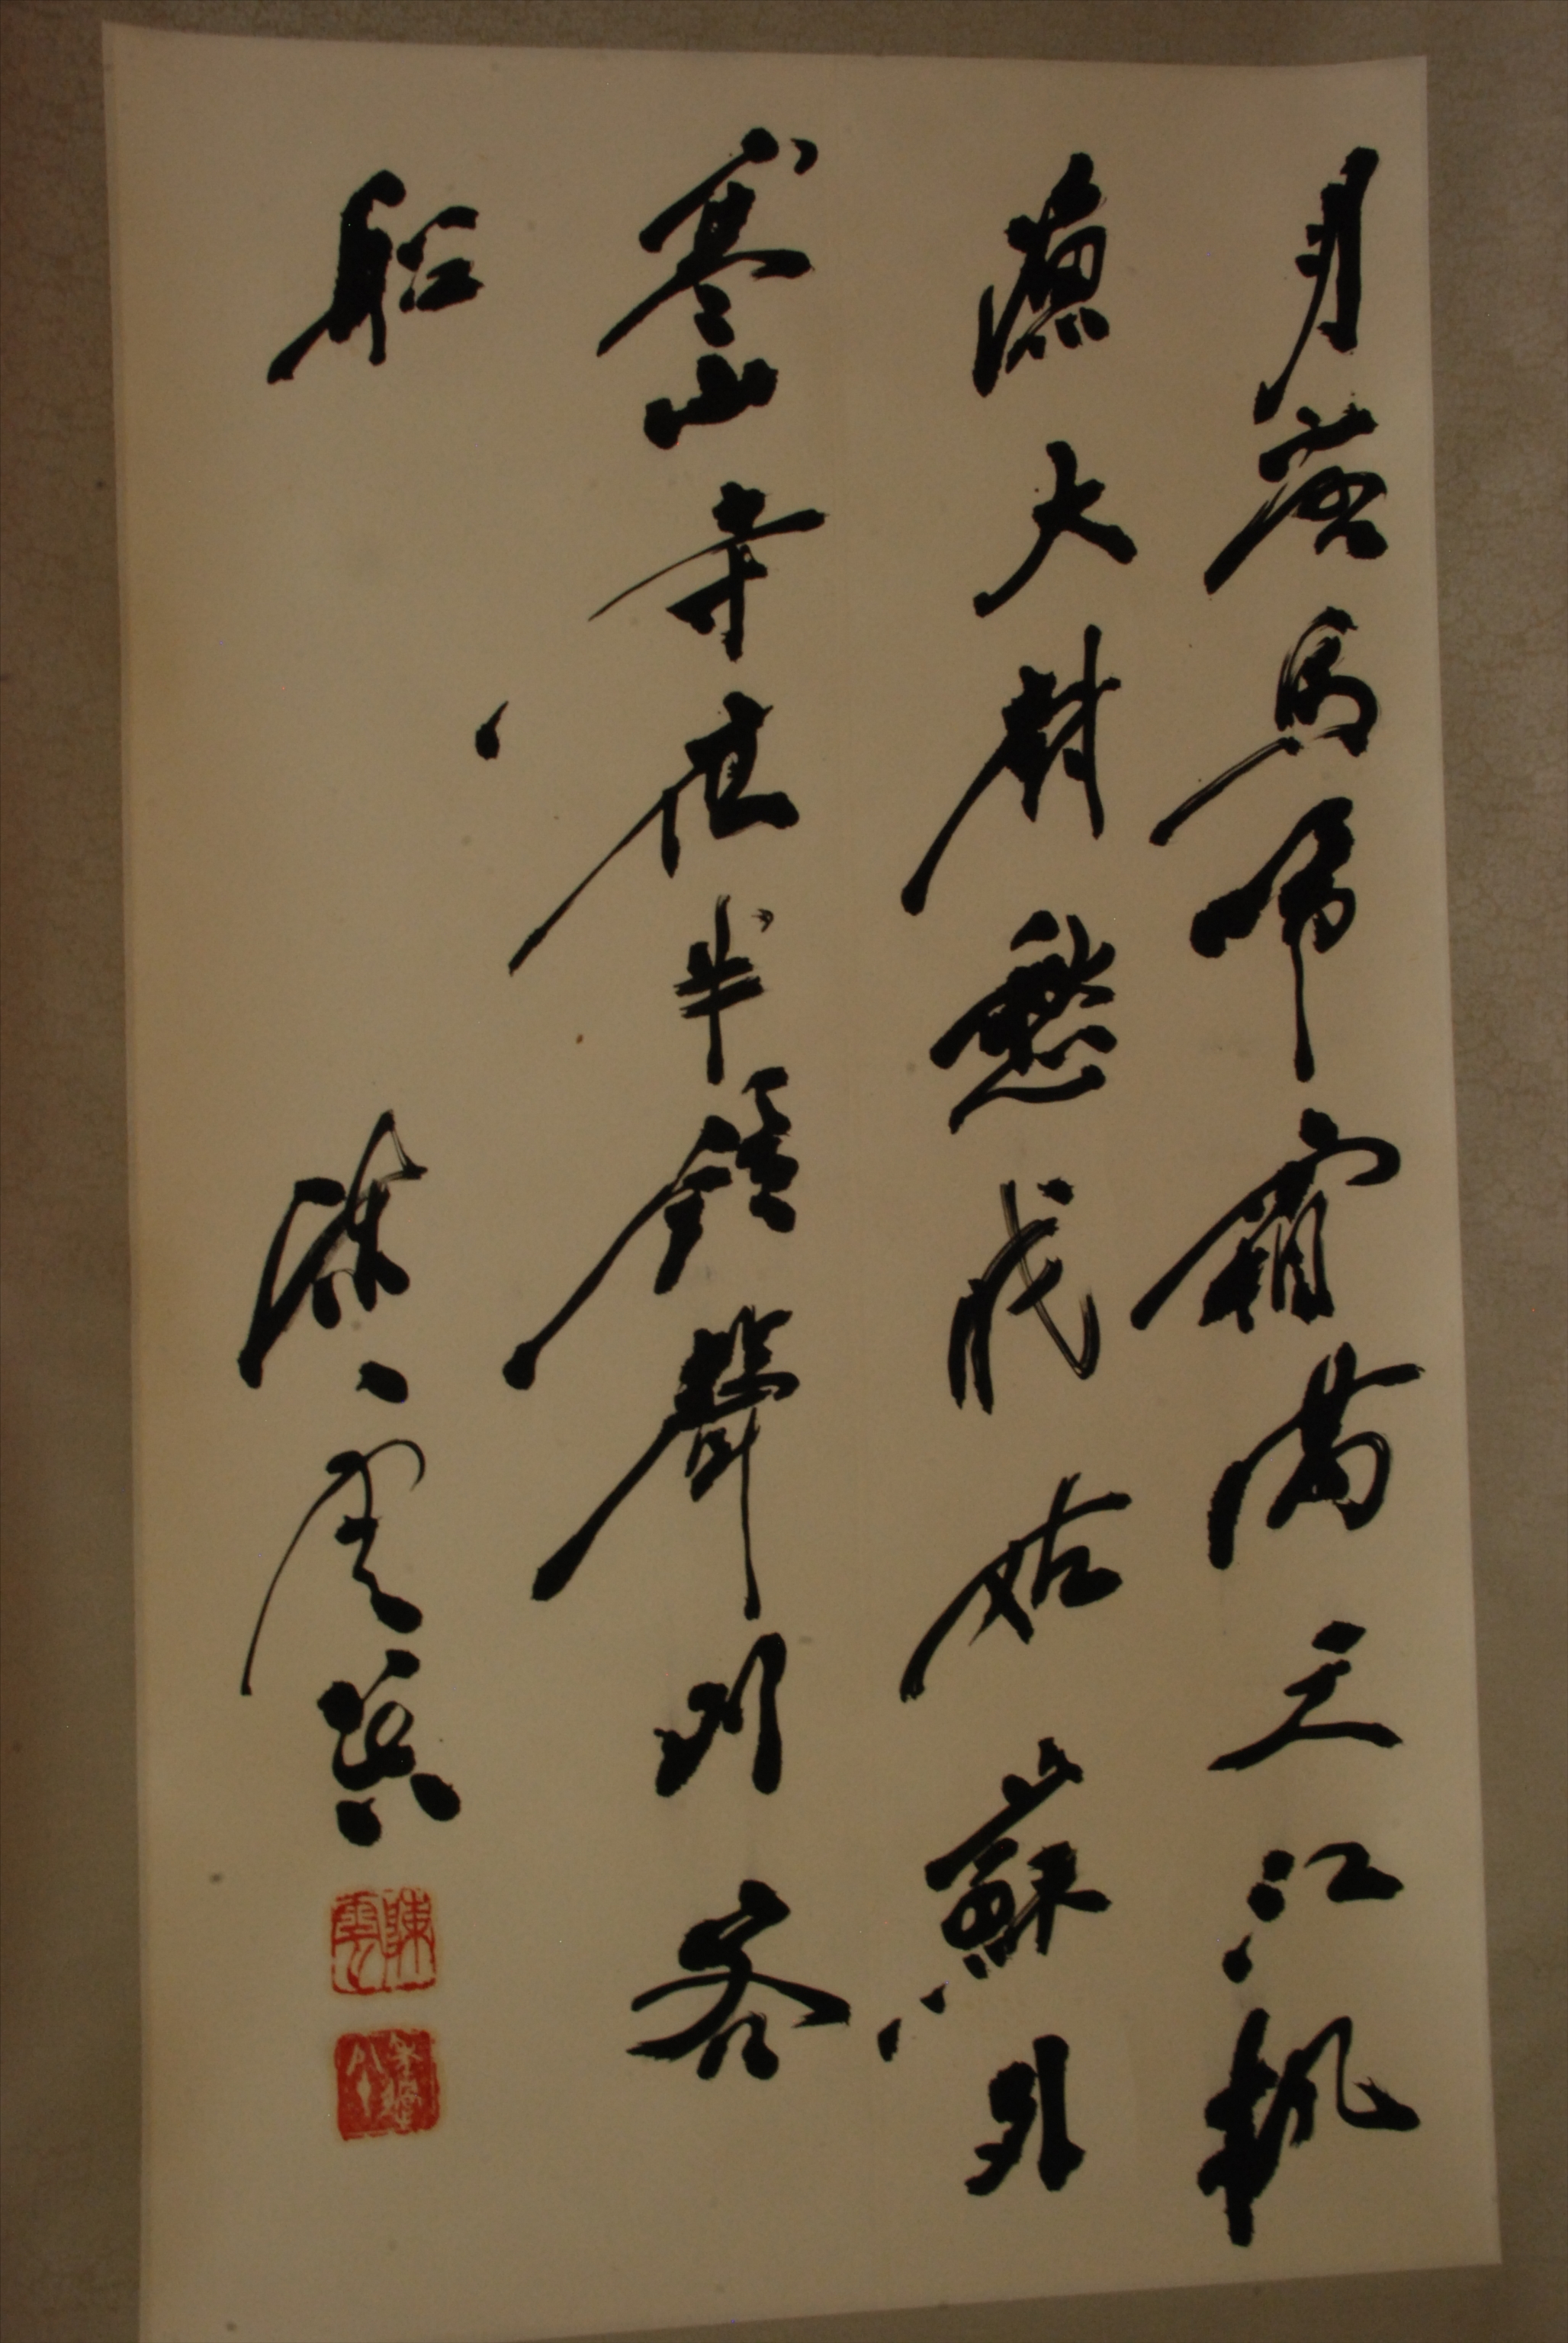 月落烏啼霜滿天江楓
漁火對愁眠姑蘇外
寒山寺夜半鐘聲到客
船
陳雲
陳雲